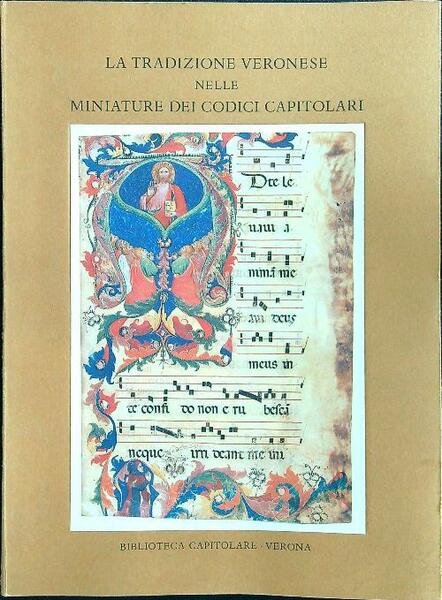 LA TRADIZIONE VERONESE
NELLE
MINIATURE DEI CODICI CAPITOLARI
D te le
uaui a
nimã me
am deus
meus in
te confi do non e ru bescã
neque irri deant me ini
BIBLIOTECA CAPITOLARE · VERONA